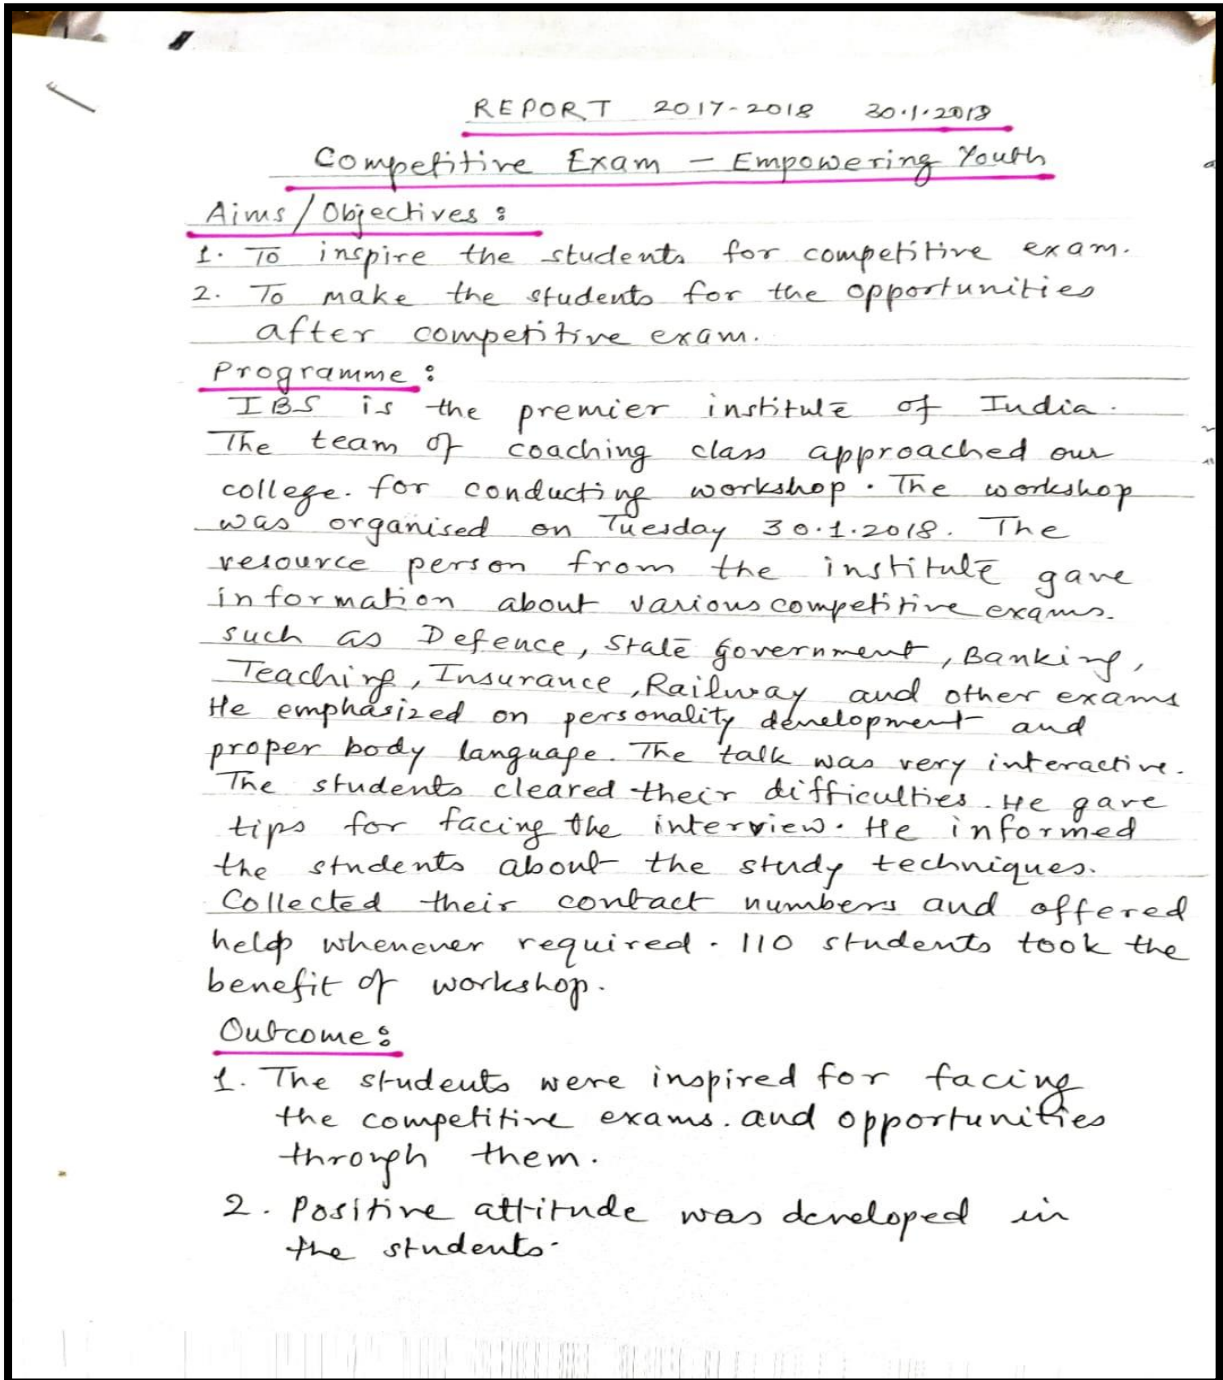 REPORT 2017-2018 30.1.2018
Competitive Exam - Empowering Youth
Aims/Objectives :
1. To inspire the students for competitive exam.
2. To make the students for the opportunities
after competitive exam.
Programme :
IBS is the premier institute of India.
The team of coaching class approached our
college. for conducting workshop. The workshop
was organised on Tuesday 30.1.2018. The
resource person from the institute gave
information about various competitive exams.
such as Defence, State Government, Banking,
Teaching, Insurance, Railway and other exams
He emphasized on personality development and
proper body language. The talk was very interactive.
The students cleared their difficulties. He gave
tips for facing the interview. He informed
the students about the study techniques.
Collected their contact numbers and offered
help whenever required. 110 students took the
benefit of workshop.
Outcome :
1. The students were inspired for facing
the competitive exams. and opportunities
through them.
2. Positive attitude was developed in
the students.